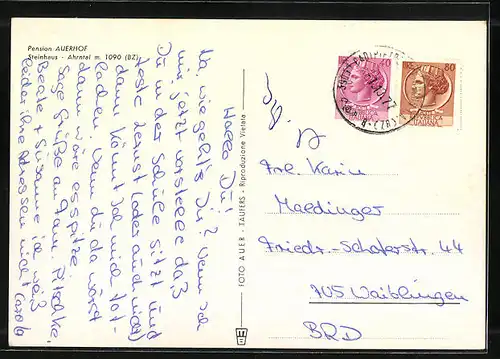 Pension AUERHOF
Steinhaus - Ahrntal m. 1090 (BZ)
Hallo Du!
Na, wie geht's Dir? Wenn ich
mir jetzt vorstelle daß
Du in der Schule sitzt und
feste lernst (oder auch nicht)
dann könnt ich mich tot-
lachen, wenn du da wärst
dann wäre es spitze.
Sage Grüße an Fam.
Beate + Susanne ich weiß
leider ihre Adressen nicht
Carola
FOTO AUER - TAUFERS - Riproduzione Vietata
40
80
Frl. Karin
Maedinger
Friedr.-Schofer str. 44
705 Waiblingen
BRD